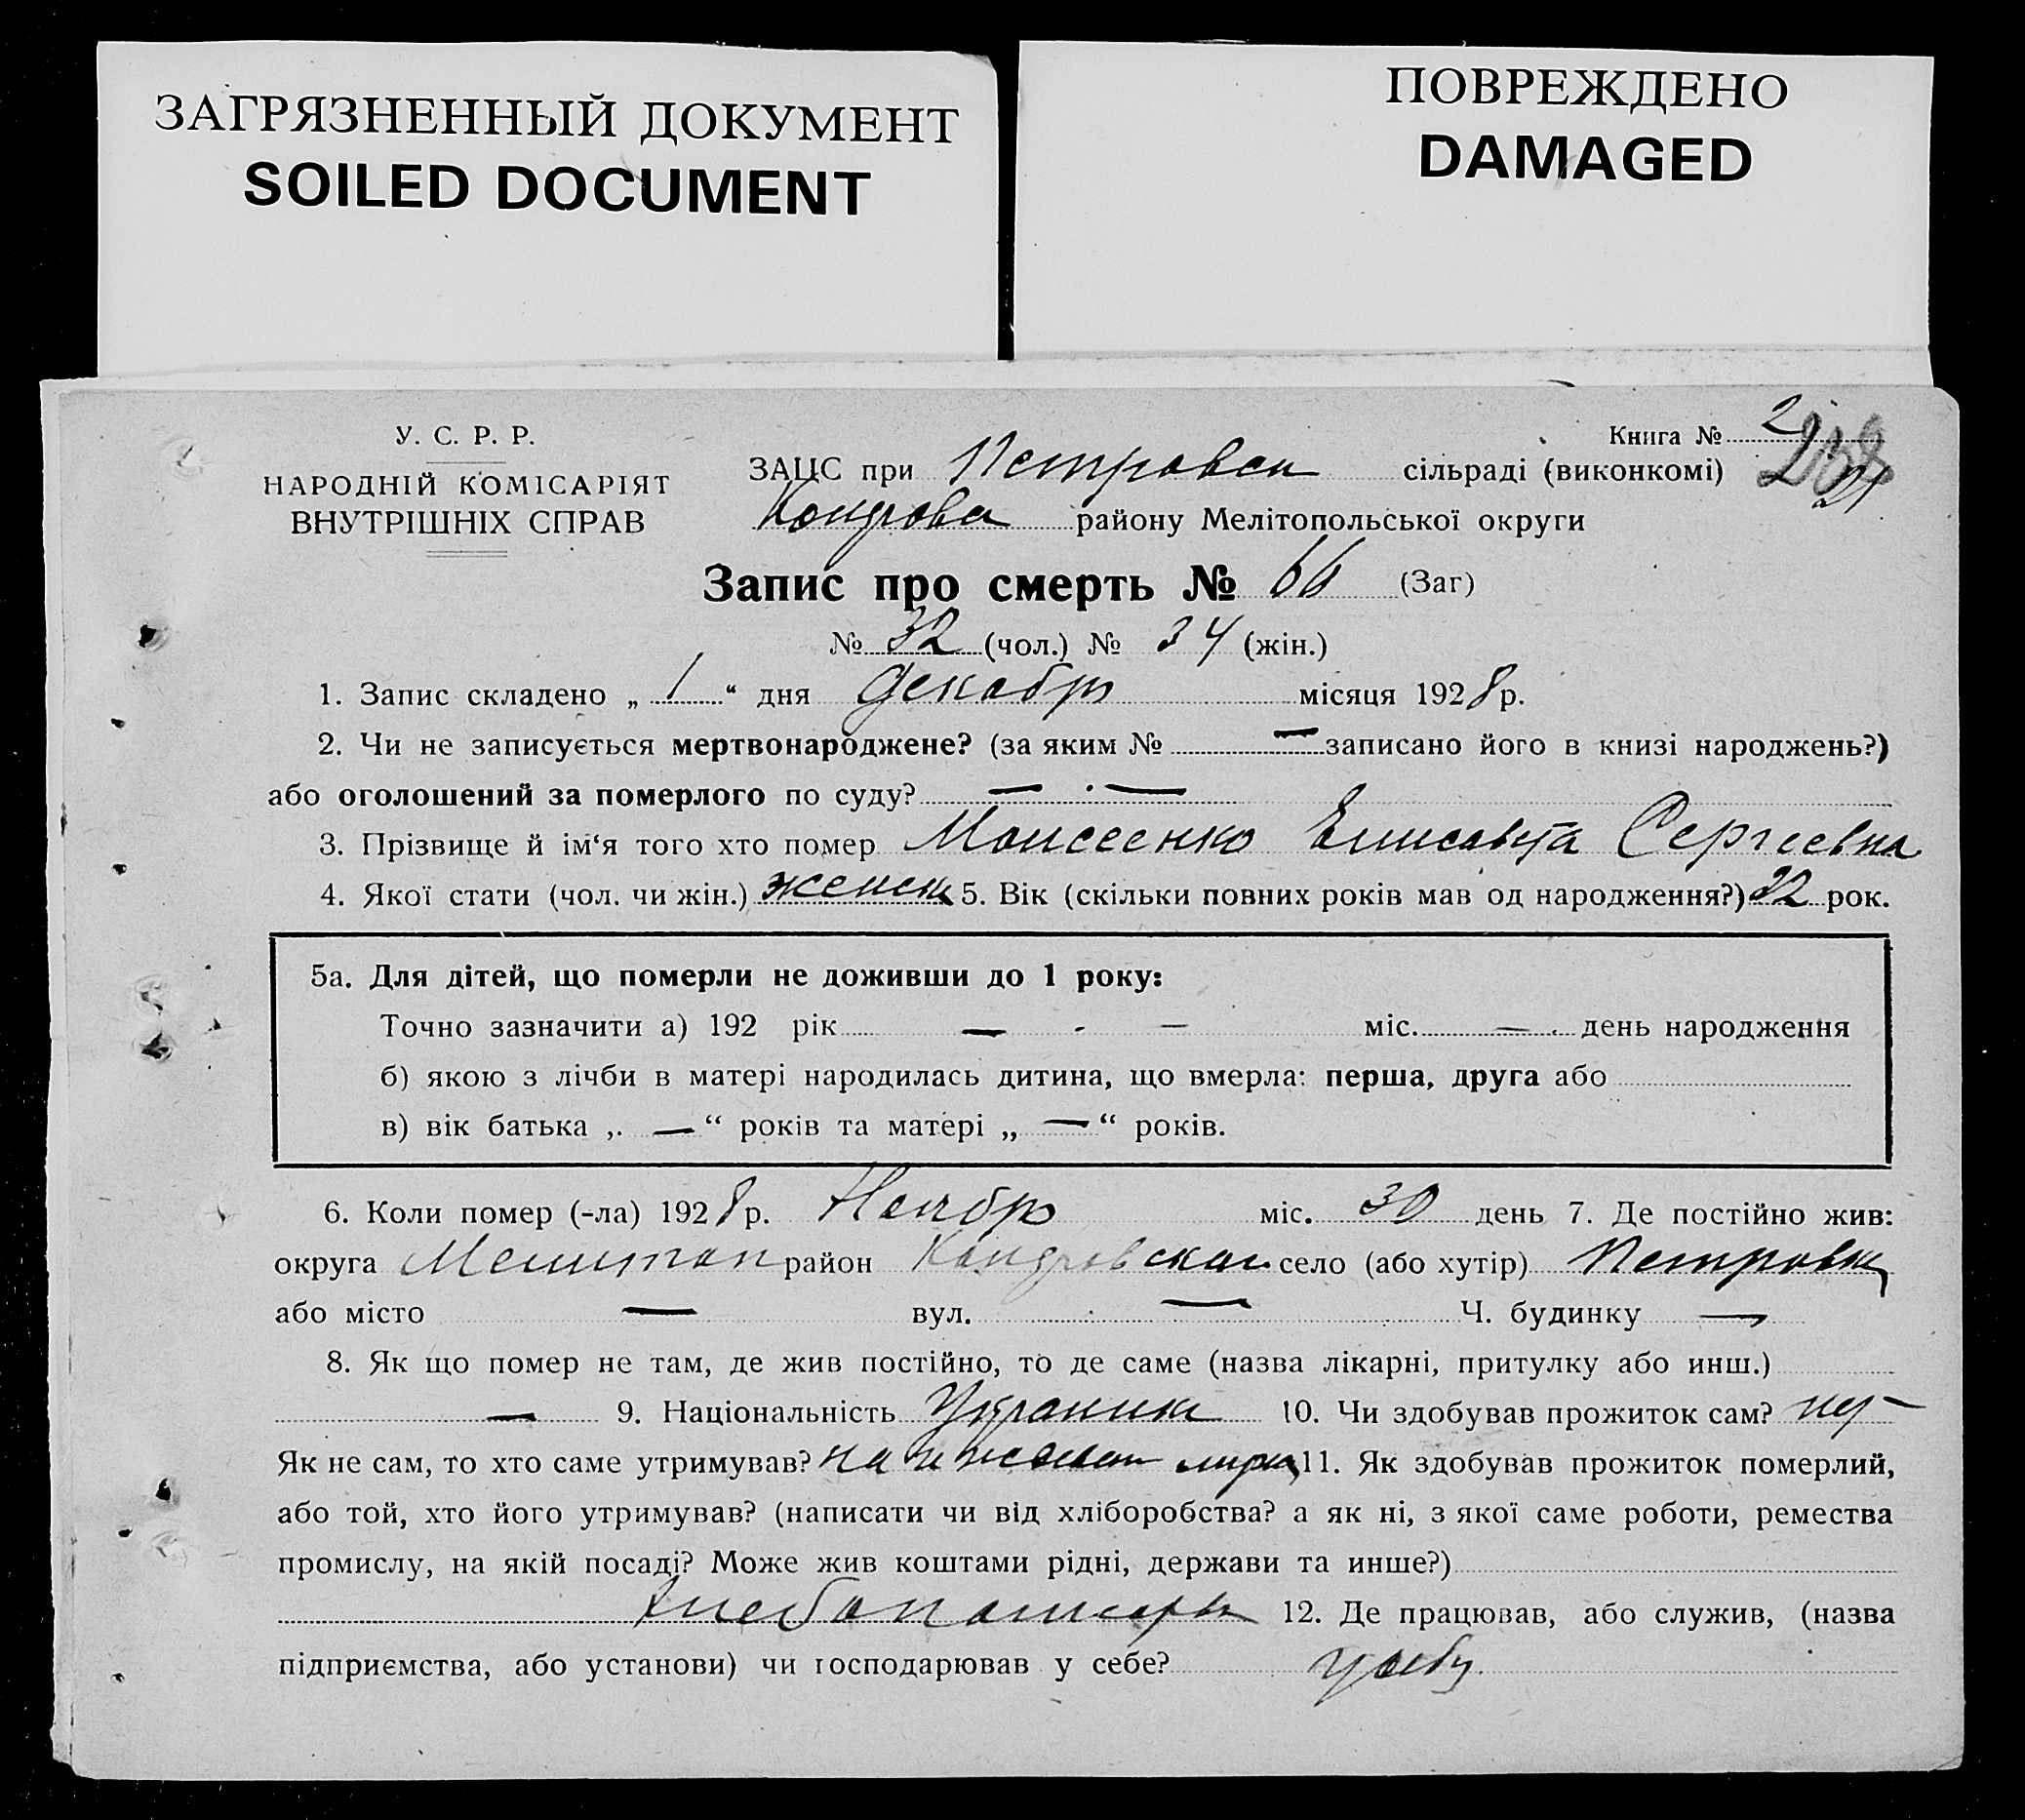 ЗАГРЯЗНЕННЫЙ ДОКУМЕНТ
SOILED DOCUMENT
ПОВРЕЖДЕНО
DAMAGED
У. С. Р. Р.
НАРОДНІЙ КОМІСАРІЯТ
ВНУТРІШНІХ СПРАВ
Книга № 2
ЗАЦС при Петровск сільраді (виконкомі)
району Мелітопольської округи
Запис про смерть № 66 (Заг)
№ 32 (чол.) № 34 (жін.)
1. Запис складено „ 1 “ дня Декабрь місяця 1928 р.
2. Чи не записується мертвонароджене? (за яким № — записано його в книзі народжень?)
або оголошений за померлого по суду? — —
3. Прізвище й ім‘я того хто помер Моисеенко Елисавета Сергеевна
4. Якої стати (чол. чи жін.) женск 5. Вік (скільки повних років мав од народження?) 32 рок.
5а. Для дітей, що померли не доживши до 1 року:
Точно зазначити а) 192 рік — - — міс. — день народження
б) якою з лічби в матері народилась дитина, що вмерла: перша, друга або
в) вік батька „ — “ років та матері „ — “ років.
6. Коли помер (-ла) 1928 р. Ноябрь міс. 30 день 7. Де постійно жив:
округа Мелитоп район село (або хутір) Петровка
або місто — вул. — Ч. будинку —
8. Як що помер не там, де жив постійно, то де саме (назва лікарні, притулку або инш.)
— 9. Національність 10. Чи здобував прожиток сам? нет
Як не сам, то хто саме утримував? на 11. Як здобував прожиток померлий,
або той, хто його утримував? (написати чи від хліборобства? а як ні, з якої саме роботи, ремества
промислу, на якій посаді? Може жив коштами рідні, держави та инше?)
12. Де працював, або служив, (назва
підприємства, або установи) чи господарював у себе? у себя